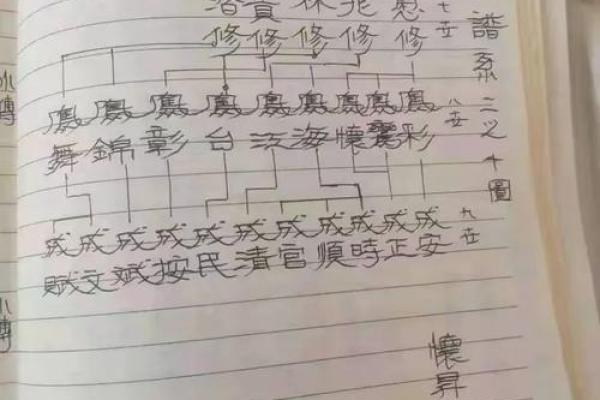 譜系二之十圖
七世
修修修修修
鳳鳳鳳鳳鳳鳳鳳鳳鳳
舞錦彰台江海懷鸞彩
八世
成成成成成成成成成成成
賦文斌按民清官順時正安
九世
懷昇